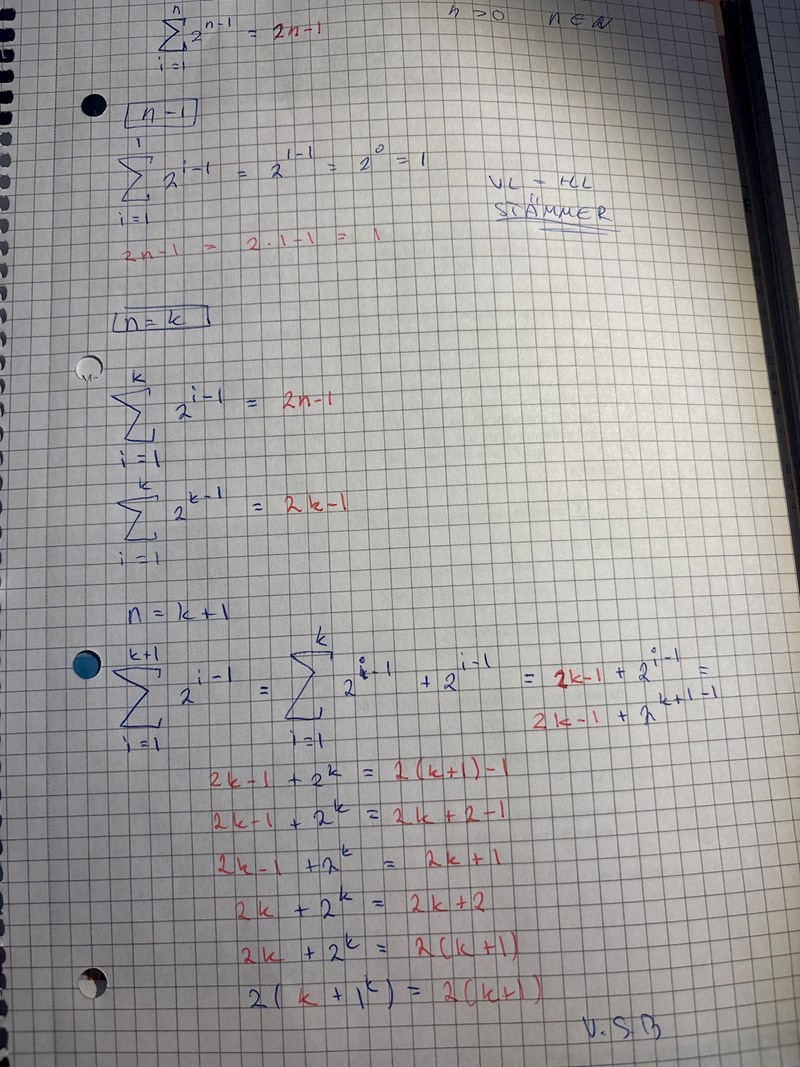 n
∑ 2^{n-1} = 2n-1    n > 0    n ∈ N
i=1
n-1
1
∑ 2^{i-1} = 2^{1-1} = 2^0 = 1
i=1
VL = HL
STÄMMER
2n-1 = 2·1-1 = 1
n=k
k
∑ 2^{i-1} = 2n-1
i=1
k
∑ 2^{k-1} = 2k-1
i=1
n = k+1
k+1    k
∑ 2^{i-1} = ∑ 2^{i-1} + 2^{i-1} = 2k-1 + 2^{i-1} =
i=1    i=1
2k-1 + 2^{k+1-1}
2k-1 + 2^k = 2(k+1)-1
2k-1 + 2^k = 2k+2-1
2k-1 + 2^k = 2k+1
2k + 2^k = 2k+2
2k + 2^k = 2(k+1)
2(k + 1^k) = 2(k+1)
V.S.B